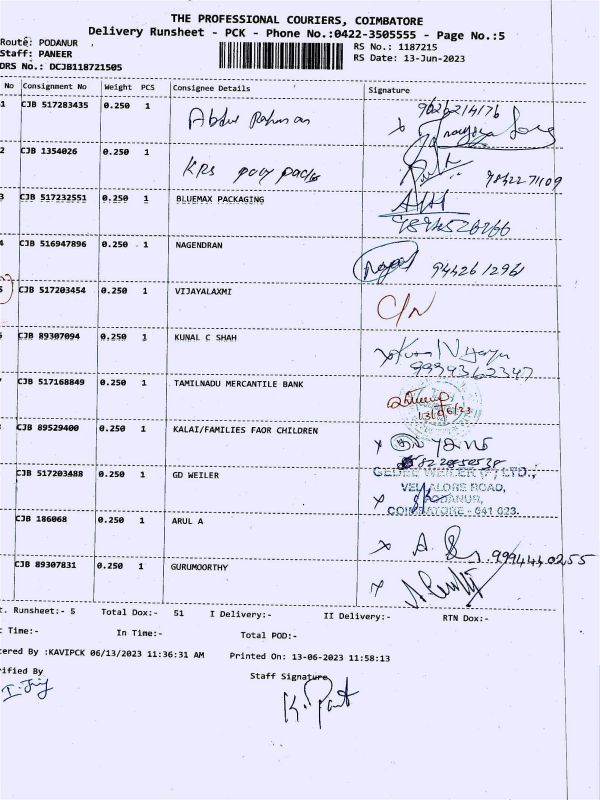 THE PROFESSIONAL COURIERS, COIMBATORE
Delivery Runsheet - PCK - Phone No.:0422-3505555 - Page No.:5
Route: PODANUR
RS No.: 1187215
Staff: PANEER
RS Date: 13-Jun-2023
DRS No.: DCJB118721505
No Consignment No Weight PCS Consignee Details Signature
1 CJB 517283435 0.250 1 Abdul Rahman
2 CJB 1354026 0.250 1 KRS poly packs
3 CJB 517232551 0.250 1 BLUEMAX PACKAGING
4 CJB 516947896 0.250 1 NAGENDRAN 9442612961
5 CJB 517203454 0.250 1 VIJAYALAXMI C/N
CJB 89307094 0.250 1 KUNAL C SHAH
9994362347
CJB 517168849 0.250 1 TAMILNADU MERCANTILE BANK
13/06/23
CJB 89529400 0.250 1 KALAI/FAMILIES FAOR CHILDREN
CJB 517203488 0.250 1 GD WEILER
GEDEE WEILER (P) LTD.,
VELLALORE ROAD,
PODANUR,
COIMBATORE - 641 023.
CJB 186068 0.250 1 ARUL A
9994440255
CJB 89307831 0.250 1 GURUMOORTHY
t. Runsheet:- 5 Total Dox:- 51 I Delivery:- II Delivery:- RTN Dox:-
Time:- In Time:- Total POD:-
tered By :KAVIPCK 06/13/2023 11:36:31 AM Printed On: 13-06-2023 11:58:13
rified By Staff Signature